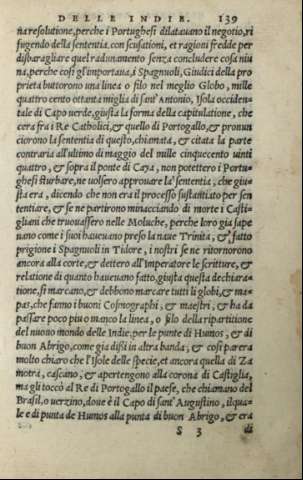 DELLE INDIE. 139
na resolutione, perche i Portughesi dilatauano il negotio, ri
fugendo della sententia, con scusationi, et ragioni fredde per
disbaragliare quel radunamento senza concludere cosa niu
na, perche cosi gl'importaua, i Spagnuoli, Giudici della pro
prieta buttorono una linea o filo nel meglio Globo, mille
quattro cento ottanta miglia di sant'Antonio, Isola occiden-
tale di Capo uerde, giusta la forma della capitulatione, che
cera fra i Re Catholici, & quello di Portogallo, & pronun
ciorono la sententia di questo, chiamata, & citata la parte
contraria all'ultimo di maggio del mille cinquecento uinti
quattro, & sopra il ponte di Caya, non potettero i Portu-
ghesi sturbare, ne uolsero approuare la sententia, che giu-
sta era, dicendo che non era il processo sustantiato per sen
tentiare, & se ne partirono minacciando di morte i Casti-
gliani che truouassero nelle Moluche, perche loro gia sape
uano come i suoi haueuano preso la naue Trinita, & fatto
prigione i Spagnuoli in Tidore, i nostri se ne ritornorono
ancora alla corte, & dettero all'Imperatore le scritture, &
relatione di quanto haueuano fatto, giusta questa dechiara-
tione, si marcano, & debbono marcare tutti li globi, & ma-
pas, che fanno i buoni Cosmographi, & maestri, & ha da
passare poco piu o manco la linea, o filo della ripartitione
del nuouo mondo delle Indie, per le punte di Humos, & di
buon Abrigo, come gia dissi in altra banda, & cosi parera
molto chiaro che l'Isole delle specie, et ancora quella di Za
motra, cascano, & apertengono alla corona di Castiglia,
ma gli toccò al Re di Portogallo il paese, che chiamano del
Brasil, o uerzino, doue è il Capo di sant'Augustino, ilqua-
le e di punta de Humos alla punta di buon Abrigo, & era
S 3 di